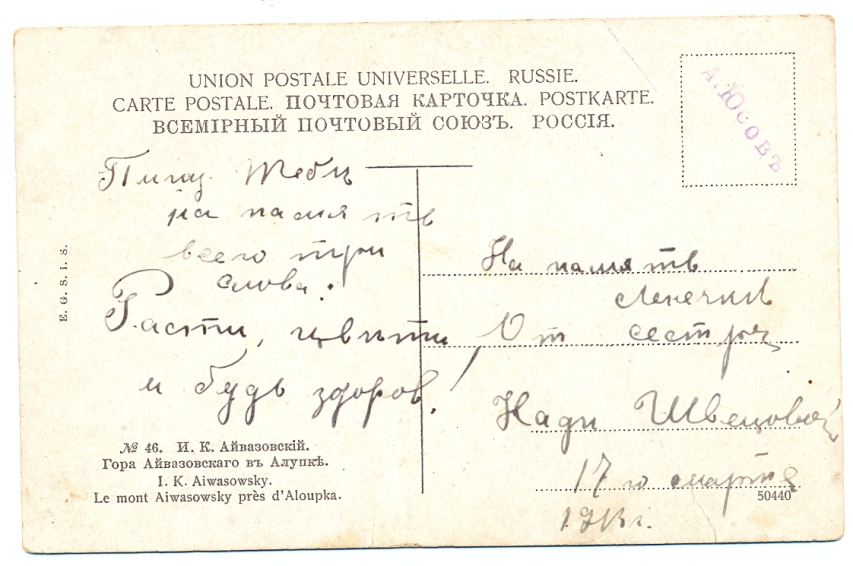 UNION POSTALE UNIVERSELLE. RUSSIE.
CARTE POSTALE. ПОЧТОВАЯ КАРТОЧКА. POSTKARTE.
ВСЕМІРНЫЙ ПОЧТОВЫЙ СОЮЗЪ. РОССІЯ.
А. Юсовъ
Пишу Тебѣ
на память
всего три
слова:
Расти, цвѣти
и будь здоров!
E. G. S. i. S.
№ 46. И. К. Айвазовскій.
Гора Айвазовскаго въ Алупкѣ.
I. K. Aiwasowsky.
Le mont Aiwasowsky près d'Aloupka.
На память
Ленечкѣ
От сестры
Нади Швецовой
17 го марта
1913 г.
50440